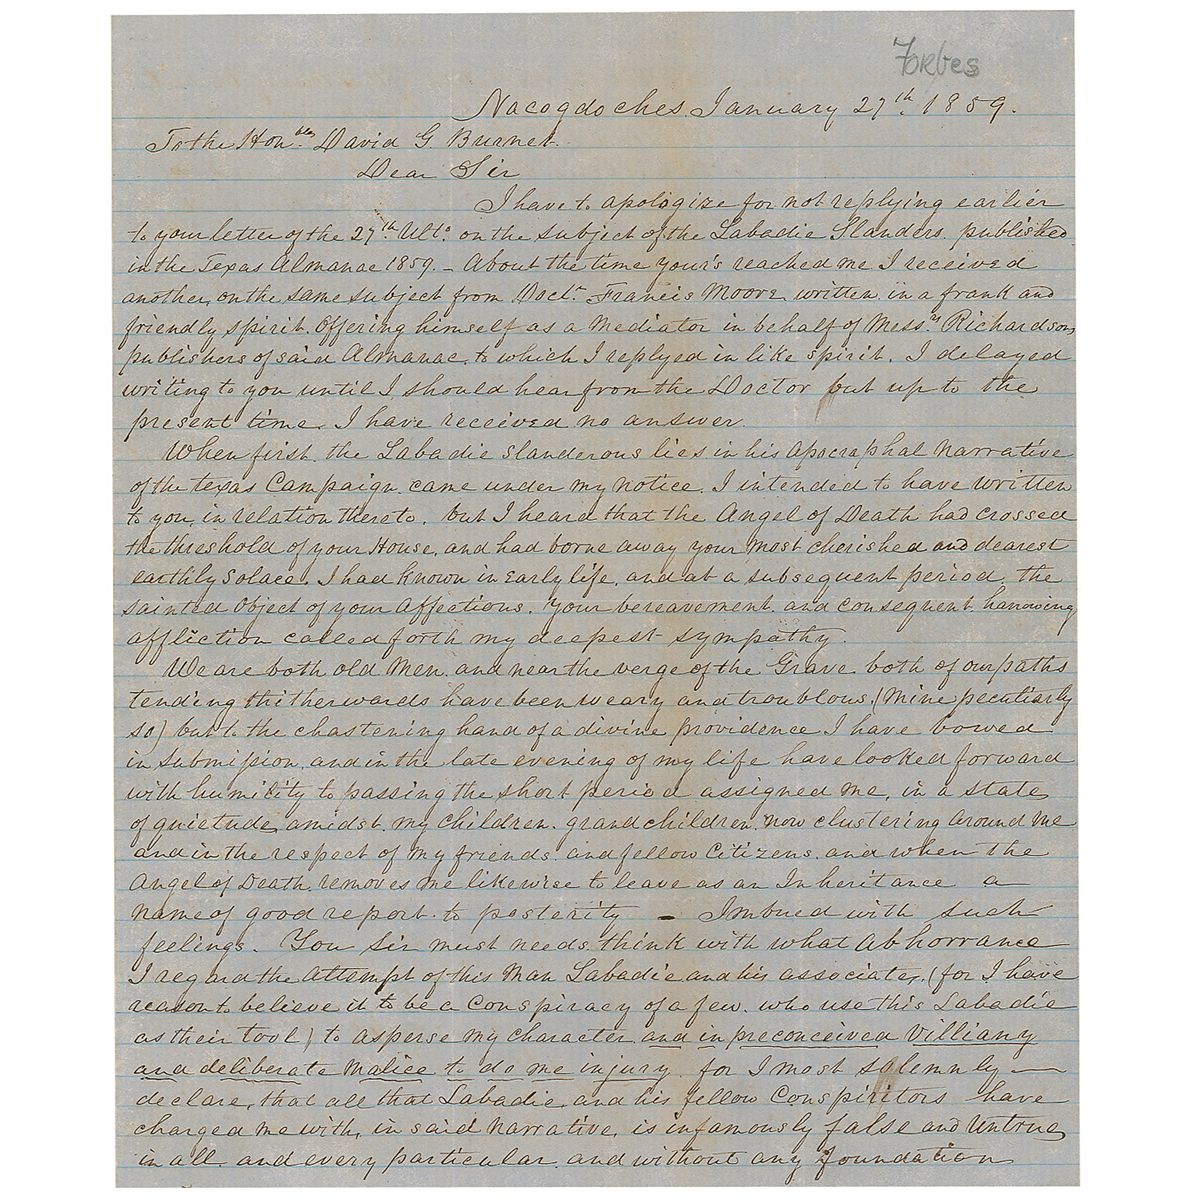 Forbes
Nacogdoches January 27th 1859.
To the Honble David G Burnet.
Dear Sir
I have to apologize for not replying earlier
to your letter of the 27th Ulto. on the subject of the Labadie Slanders, published
in the Texas Almanac 1859. – About the time your's reached me I received
another, on the same subject from Doctr Francis Moore written in a frank and
friendly spirit. Offering himself as a Mediator in behalf of Messrs Richardson,
publishers of said Almanac, to which I replyed in like spirit. I delayed
writing to you until I should hear from the Doctor but up to the
present time, I have received no answer.
When first the Labadie slanderous lies in his Apocraphal Narrative
of the Texas Campaign came under my notice, I intended to have written
to you, in relation thereto, but I heard that the Angel of Death had crossed
the threshold of your House, and had borne away your most cherished and dearest
earthly Solace, I had known in Early life, and at a subsequent period, the
sainted Object of your Affections. Your bereavement and consequent harrowing
affliction called forth my deepest sympathy.
We are both old Men, and near the verge of the Grave both of our paths
tending thitherwards have been weary and troublous, (Mine peculiarly
so) but to the chastering hand of a divine providence I have bowed
in Submission, and in the late evening of my life have looked forward
with humility to passing the short period assigned me, in a state,
of quietude, amidst my Children, grandchildren, now clustering around me
and in the respect of my friends, and fellow Citizens, and when the
Angel of Death, removes me likewise to leave as an Inheritance a
Name of good report to posterity – Imbued with such
feelings. You Sir must needs think with what Abhorrance
I regard the Attempt of this Man Labadie and his associates, (for I have
reason to believe it to be a Conspiracy of a few, who use this Labadie
as their tool) to asperse my Character, and in preconceived Villiany
and deliberate Malice to do me injury for I most solemnly —
declare, that all that Labadie, and his fellow Conspiritors have
charged me with, in said Narrative, is infamously false and Untrue,
in all, and every particular, and without any foundation